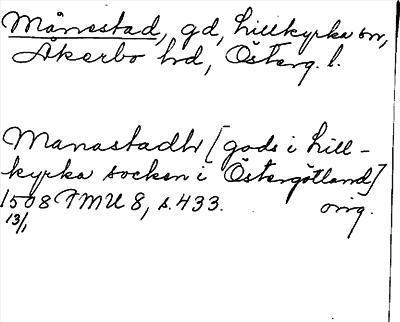 Månestad, gd, Lillkyrka sn,
Åkerbo hd, Österg. l.
Manastadhr [gods i Lill-
kyrka socken i Östergötland]
1508 FMU 8, s. 433. orig.
13/1